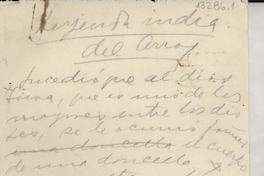 13286.1
Leyenda india
del Arroz
Sucedió que al dios
Siva, que es uno de los
mayores entre los dio
ses, se le ocurrió
una doncella el cuerpo
de una doncella y